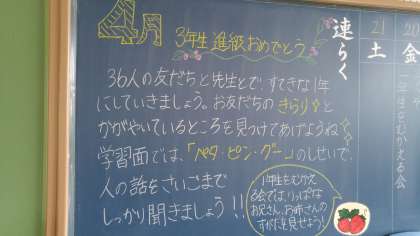 4月
3年生進級おめでとう
36人の友だちと先生とで、すてきな1年
にしていきましょう。お友だちのきらり☆と
かがやいているところを見つけてあげようね
学習面では、「ペタ・ピン・グー」のしせいで、
人の話をさいごまで
しっかり聞きましょう!!
1年生をむかえ
る会では、りっぱな
お兄さん、お姉さんの
すがたを見せよう!
連らく
21
土
20
金
1年生をむかえる会